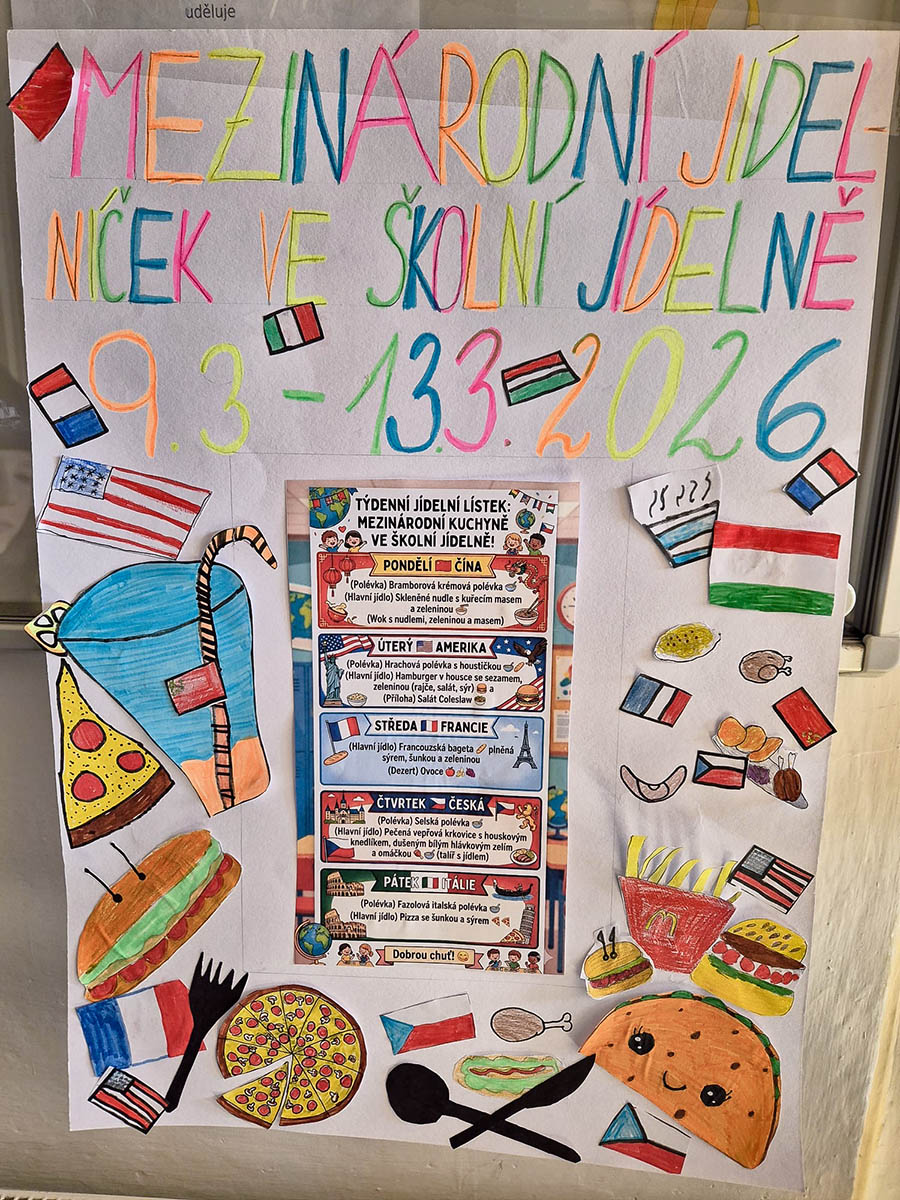 uděluje
MEZINÁRODNÍ JÍDEL-
NÍČEK VE ŠKOLNÍ JÍDELNĚ
9.3 - 13.3. 2026
TÝDENNÍ JÍDELNÍ LÍSTEK:
MEZINÁRODNÍ KUCHYNĚ
VE ŠKOLNÍ JÍDELNĚ!
PONDĚLÍ ČÍNA
(Polévka) Bramborová krémová polévka
(Hlavní jídlo) Skleněné nudle s kuřecím masem
a zeleninou
(Wok s nudlemi, zeleninou a masem)
ÚTERÝ AMERIKA
(Polévka) Hrachová polévka s houstičkou
(Hlavní jídlo) Hamburger v housce se sezamem,
zeleninou (rajče, salát, sýr) a
(Příloha) Salát Coleslaw
STŘEDA FRANCIE
(Hlavní jídlo) Francouzská bageta plněná
sýrem, šunkou a zeleninou
(Dezert) Ovoce
ČTVRTEK ČESKÁ
(Polévka) Selská polévka
(Hlavní jídlo) Pečená vepřová krkovice s houskovým
knedlíkem, dušeným bílým hlávkovým zelím
a omáčkou (talíř s jídlem)
PÁTEK ITÁLIE
(Polévka) Fazolová italská polévka
(Hlavní jídlo) Pizza se šunkou a sýrem
Dobrou chuť!
M